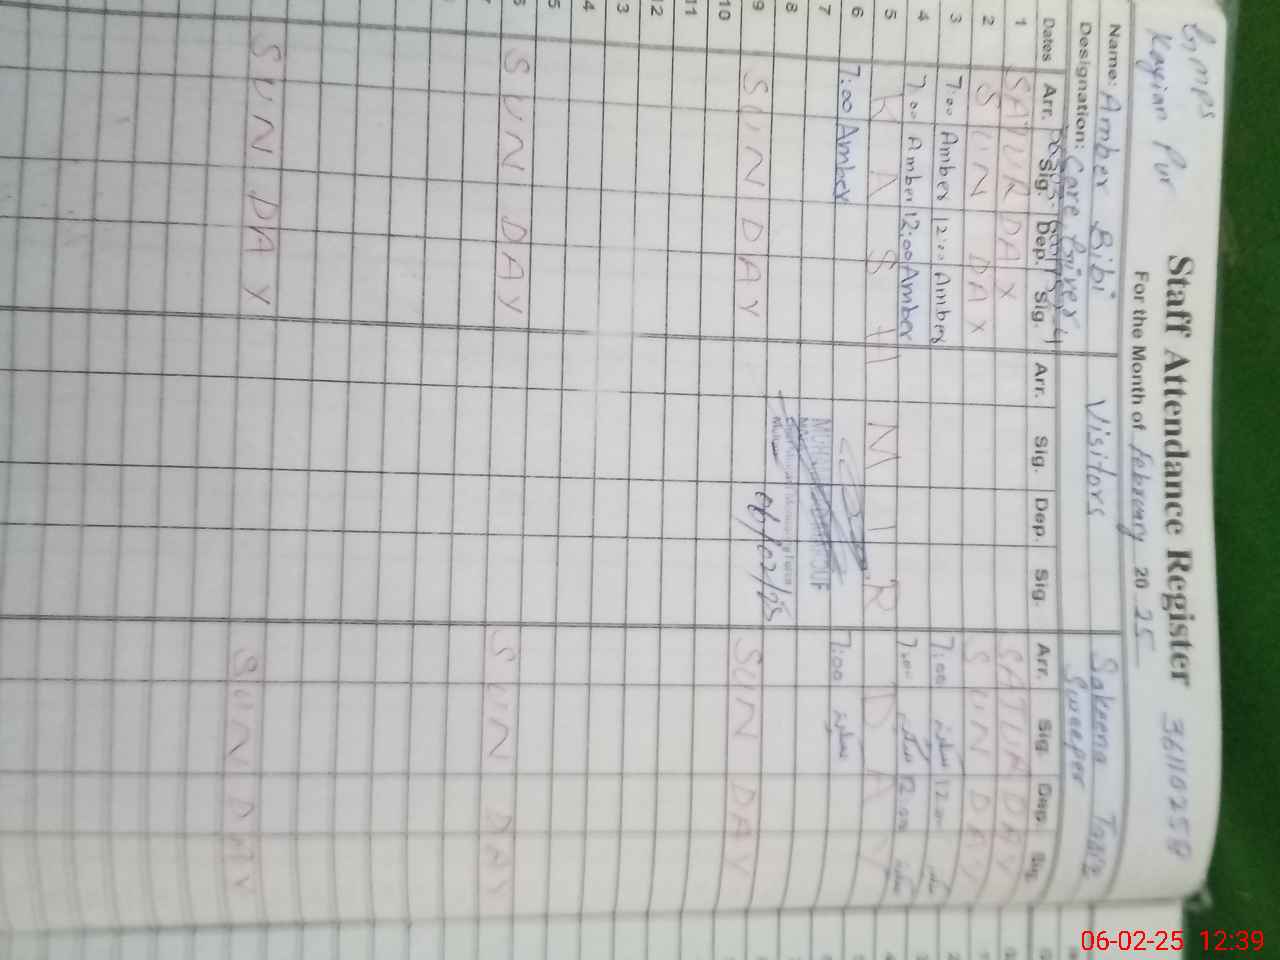 GMPS
Kayian Pur
Staff Attendance Register 36110258
For the Month of February 2025
Name: Amber Bibi Visitors Sakeena
Designation: Care Giver Sweeper
Dates Arr. Sig. Dep. Sig. Arr. Sig. Dep. Sig. Arr. Sig. Dep. Sig.
1 SATURDAY SATURDAY
2 SUNDAY SUNDAY
3 7:00 Amber 12:00 Amber 7:00 12:00
4 7:00 Amber 12:00 Amber 7:00 12:00
5 KASHMIR DAY
6 7:00 Amber 7:00
7
8
06/02/25
9 SUNDAY SUNDAY
10
11
12
3
4
5
6 SUNDAY SUNDAY
7
SUNDAY SUNDAY
06-02-25 12:39